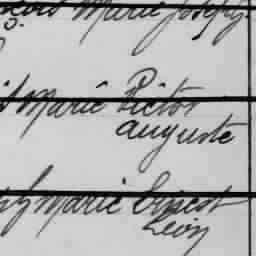 Marie Joseph
Marie Victor
auguste
Marie Ernest
Léon